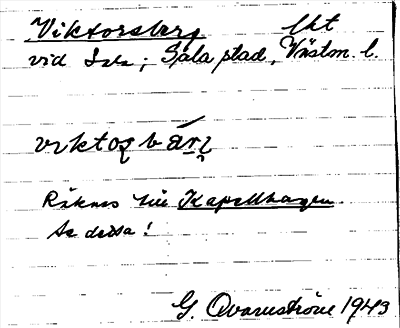 Viktorsberg lht
vid Sala; Sala stad, Västm. l.
viktoʂbár̲ı̨
Räknas till Kapellhagen.
Se dessa!
G. Qvarnström 1943